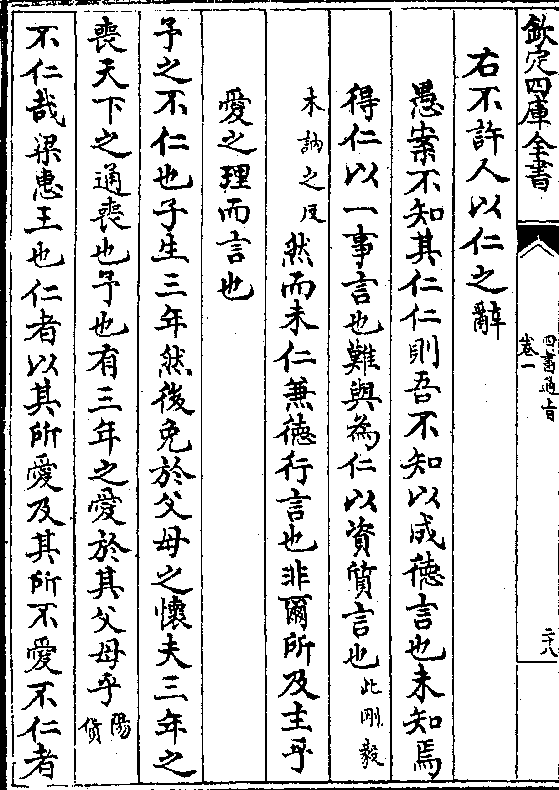 欽定四庫全書
四書通旨
卷一
二十八
右不許人以仁之辭
愚案不知其仁仁則吾不知以成德言也未知焉
得仁以一事言也難與為仁以資質言也此剛毅
木訥之反然而未仁兼德行言也非爾所及主乎
愛之理而言也
予之不仁也子生三年然後免於父母之懷夫三年之
喪天下之通喪也予也有三年之愛於其父母乎陽貨
不仁哉梁惠王也仁者以其所愛及其所不愛不仁者